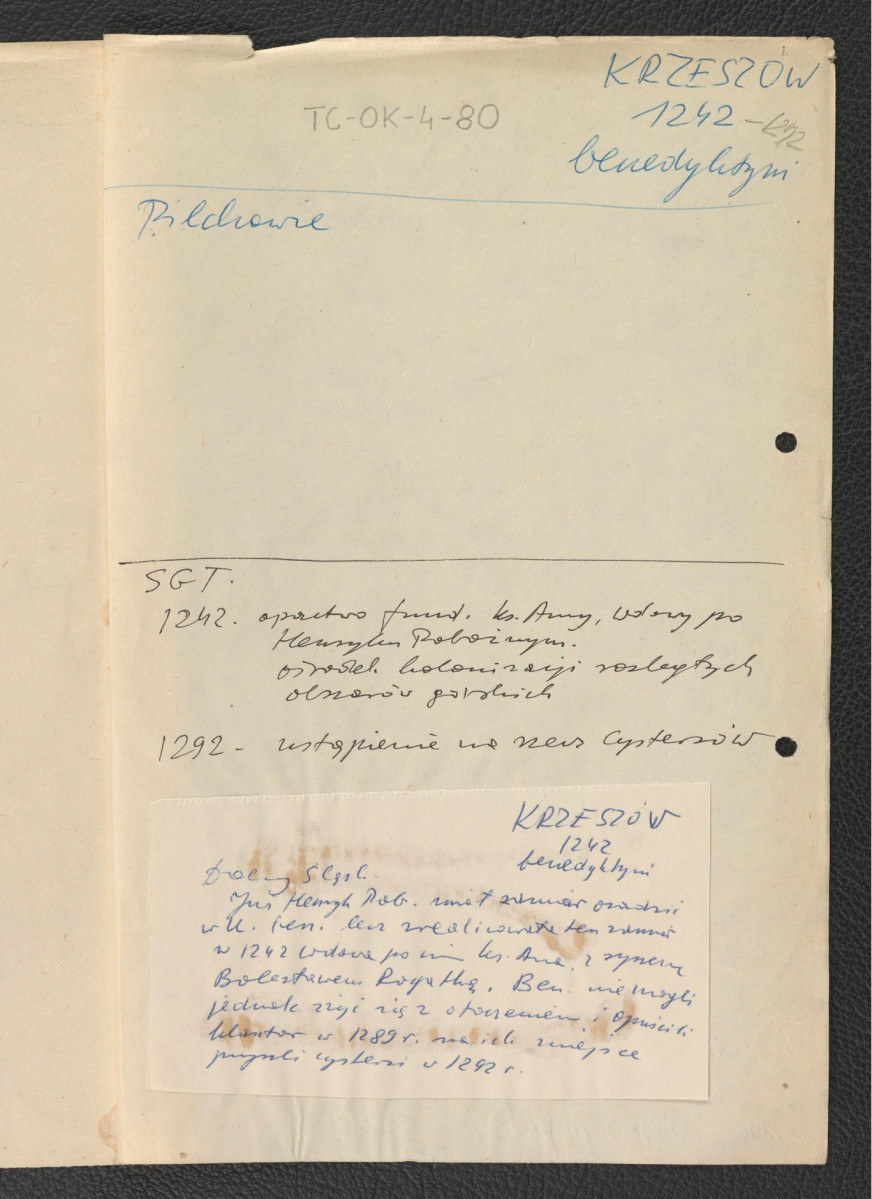 KRZESZÓW
TC-OK-4-80
1242 -
benedyktyni
Pilchowie
SGT.
1242. opactwo fund. ks. Anny, wdowy po
Henryku Pobożnym.
ośrodek kolonizacji rozległych
obszarów górskich
1292 - ustąpienie na rzecz Cystersów
KRZESZÓW
1242
benedyktyni
Dolny Śląsk.
Już Henryk Pob. miał zamiar osadzić
w K. ben. lecz zrealizowała ten zamiar
w 1242 wdowa po nim ks. Ana, z synem
Bolesławem Rogatką. Ben. nie mogli
jednak zżyć się z otoczeniem i opuścili
klasztor w 1289 r. na ich miejsce
przyszli cystersi w 1292 r.